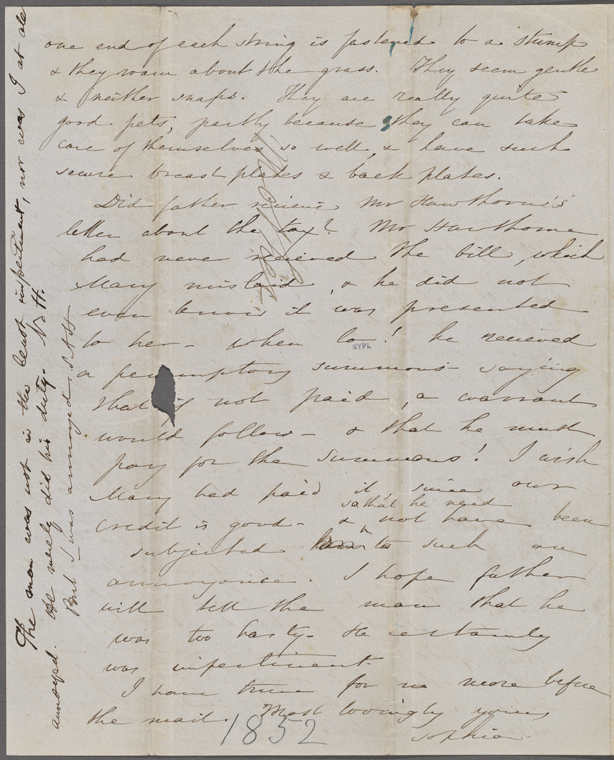 one end of each string is fastened to a stump
& they roam about the grass. They seem gentle
& neither snaps. They are really quite
good pets, partly because they can take
care of themselves so well, & have such
secure breast plates & back plates.
Did father receive Mr Hawthorne's
letter about the tax? Mr Hawthorne
had never received the bill, which
Mary mislaid, & he did not
even know it was presented
to her - when lo! he received
a peremptory summons saying
that if not paid, a warrant
would follow - & that he must
pay for the summons! I wish
Mary had paid it since our
credit is good - & so that he need
not have been
subjected to such an
annoyance. I hope father
will tell the man that he
was too hasty - He certainly
was impertinent.
I have time for no more before
the mail. Most lovingly yours
Sophia.
1852
NYPL
The man was not in the least impertinent, nor was I at all
annoyed. He merely did his duty. N. H.
But I was annoyed. S A H